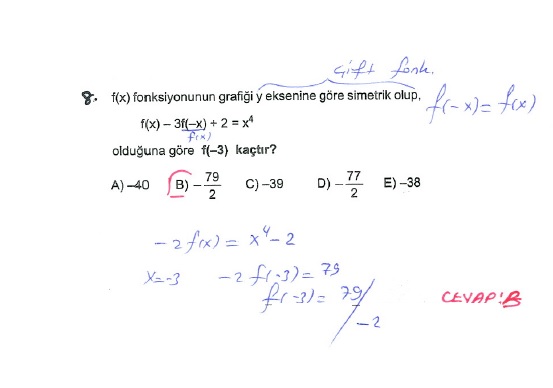 çift fonk.
8. f(x) fonksiyonunun grafiği y eksenine göre simetrik olup, f(-x) = f(x)
f(x) – 3f(–x) + 2 = x⁴
f(x)
olduğuna göre f(–3) kaçtır?
A) –40 B) –79/2 C) –39 D) –77/2 E) –38
-2f(x) = x⁴-2
x=-3 -2f(-3) = 79
f(-3) = 79/-2
CEVAP:B